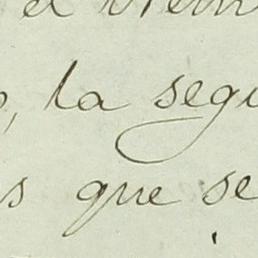 el
, la segu
s que se